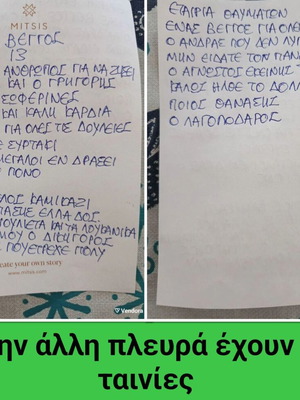 MITSIS
ΒΕΓΓΟΣ
13
ΑΝΘΡΩΠΟΣ ΓΙΑ ΝΑ ΖΗΣΕΙ
ΚΑΙ Ο ΓΡΗΓΟΡΗΣ
ΕΣΦΕΡΙΝΕΣ
ΚΑΙ ΚΑΛΗ ΚΑΡΔΙΑ
ΓΙΑ ΟΛΕΣ ΤΙΣ ΔΟΥΛΕΙΕΣ
ΣΥΡΤΑΚΙ
ΜΕΓΑΛΟΙ ΕΝ ΔΡΑΣΕΙ
ΠΟΝΟ
ΚΑΜΙΚΑΖΙ
ΕΛΛΑΔΟΣ
ΚΑΙ ΤΑ ΛΟΥΚΑΝΙΚΑ
ΜΟΥ Ο ΔΙΚΗΓΟΡΟΣ
ΠΟΥ ΕΤΡΕΧΕ ΠΟΛΥ
create your own story
www.mitsis.com
ΕΤΑΙΡΙΑ ΘΑΥΜΑΤΩΝ
ΕΝΑΣ ΒΕΓΓΟΣ ΓΙΑ ΟΛΕ
Ο ΑΝΔΡΑΣ ΠΟΥ ΔΕΝ ΛΥΓ
ΜΗΝ ΕΙΔΑΤΕ ΤΟΝ ΠΑΝΑ
Ο ΑΓΝΩΣΤΟΣ ΕΚΕΙΝΟΣ
ΚΑΛΩΣ ΗΛΘΕ ΤΟ ΔΟΛΛ
ΠΟΙΟΣ ΘΑΝΑΣΗΣ
Ο ΛΑΓΟΠΟΔΑΡΟΣ
Vendora
ην άλλη πλευρά έχουν
ταινίες